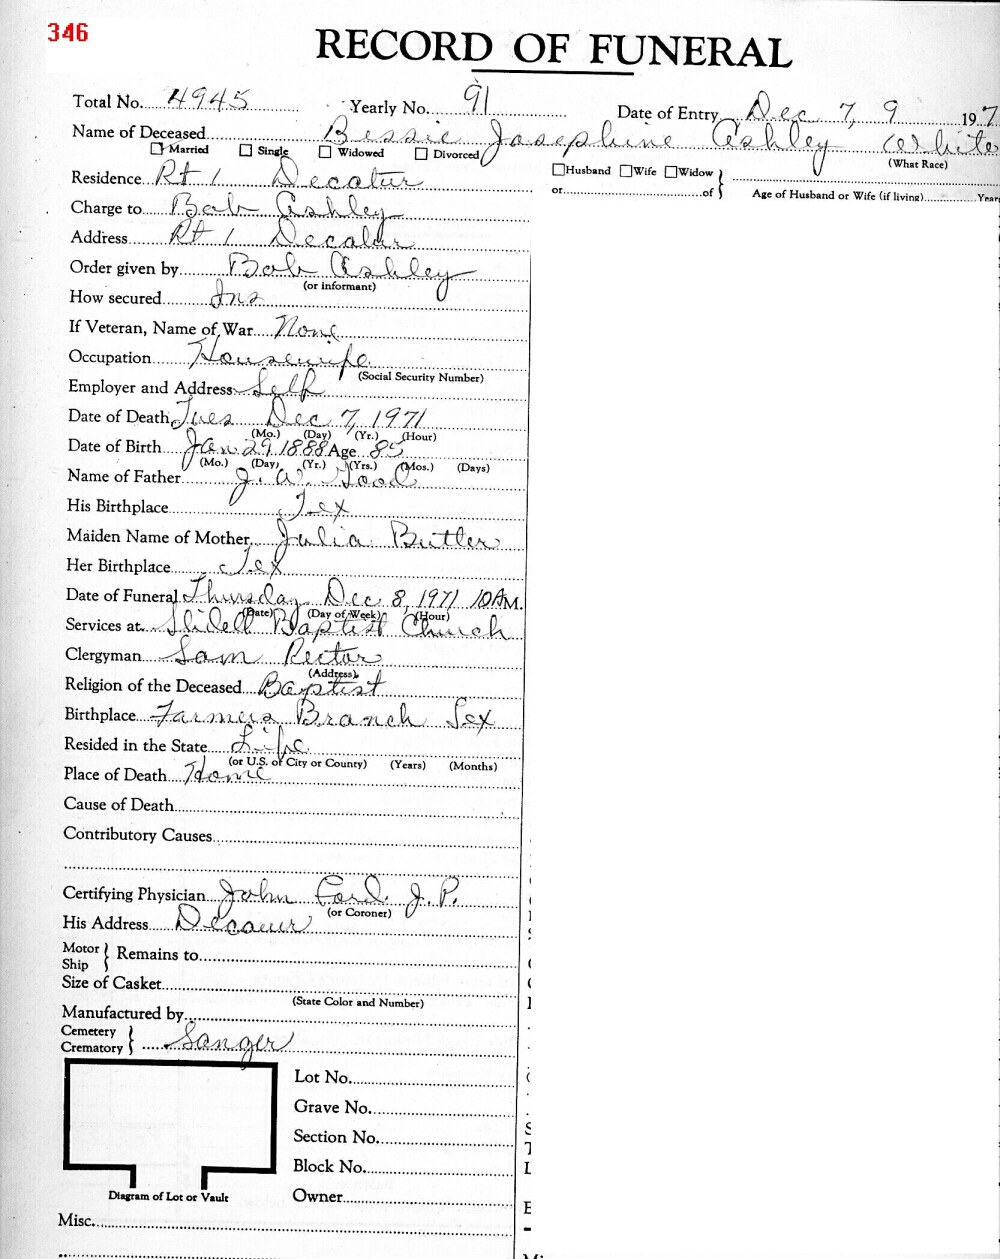 346
RECORD OF FUNERAL
Total No. 4945 Yearly No. 91 Date of Entry Dec 7, 9 197
Name of Deceased Bessie Josephine Ashley White
Married Single Widowed Divorced (What Race)
Residence Rt 1 Decatur Husband Wife Widow
or of Age of Husband or Wife (if living) Year
Charge to Bob Ashley
Address Rt 1 Decatur
Order given by Bob Ashley
(or informant)
How secured Ins
If Veteran, Name of War None
Occupation Housewife
(Social Security Number)
Employer and Address Self
Date of Death Tues Dec 7, 1971
(Mo.) (Day) (Yr.) (Hour)
Date of Birth Jan 29 1888 Age 85
(Mo.) (Day) (Yr.) (Yrs.) (Mos.) (Days)
Name of Father J. W. Good
His Birthplace Tex
Maiden Name of Mother Julia Butler
Her Birthplace Tex
Date of Funeral Thursday Dec 8, 1971 10AM.
(Date) (Day of Week) (Hour)
Services at Slidell Baptist Church
Clergyman Sam Rector
(Address)
Religion of the Deceased Baptist
Birthplace Farmers Branch Tex
Resided in the State Life
(or U.S. or City or County) (Years) (Months)
Place of Death Home
Cause of Death
Contributory Causes
Certifying Physician John Ford J.P.
(or Coroner)
His Address Decatur
Motor
Ship Remains to
Size of Casket
(State Color and Number)
Manufactured by
Cemetery
Crematory Sanger
Lot No.
Grave No.
Section No.
Block No.
Diagram of Lot or Vault Owner
Misc.